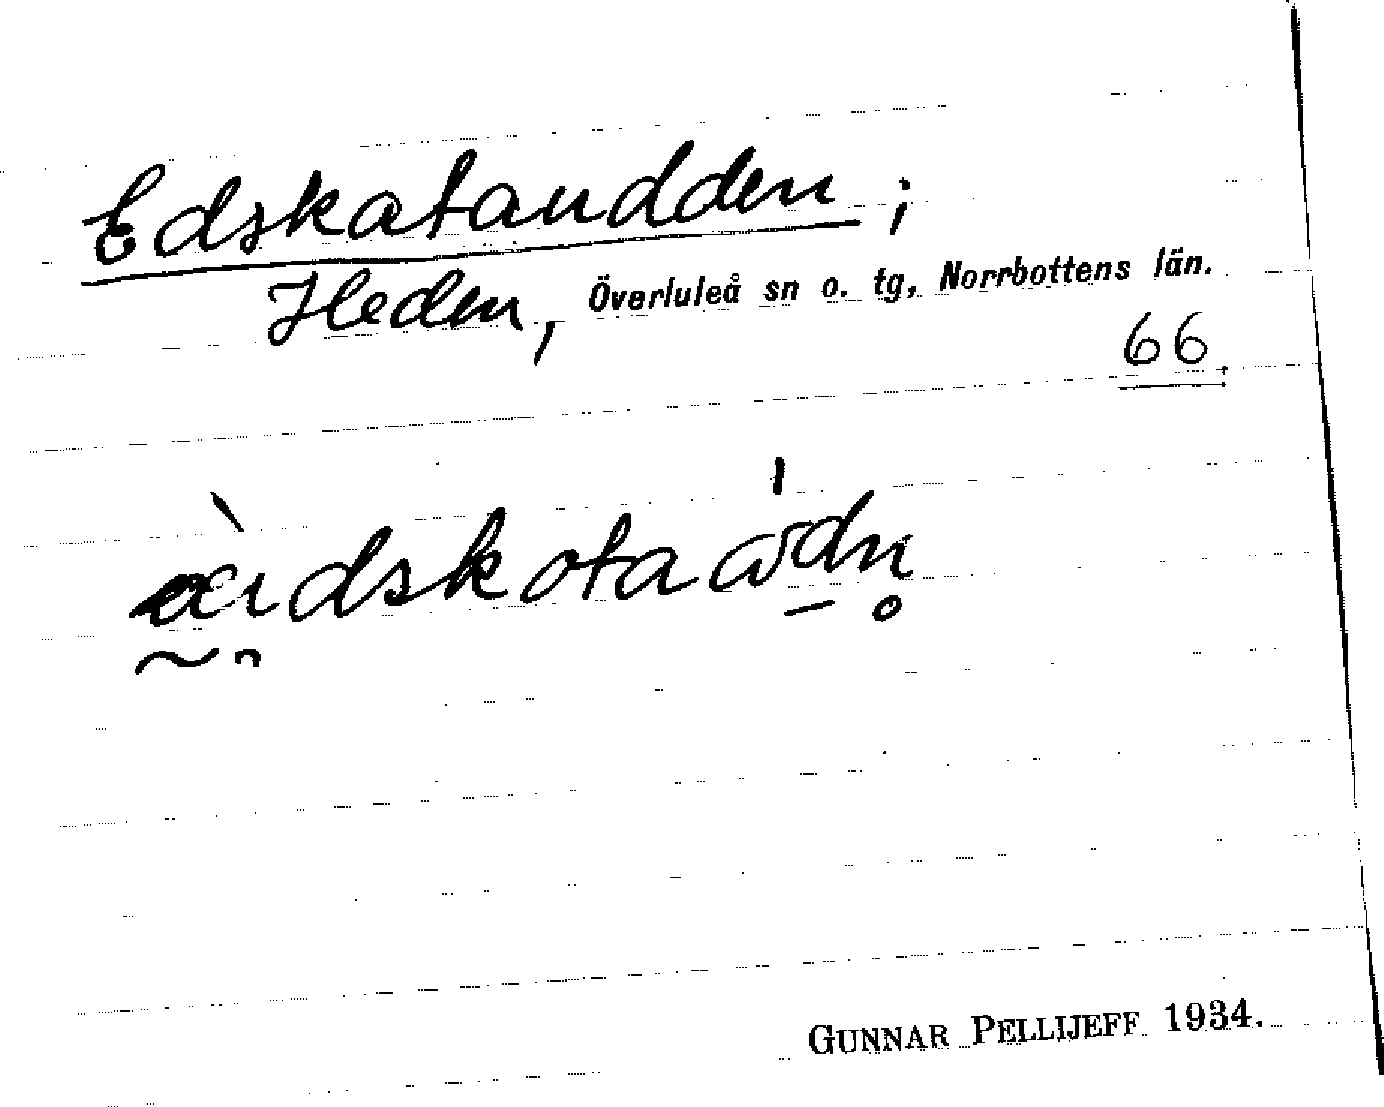 Edskataudden;
Heden, Överluleå sn o. tg, Norrbottens län.
66.
æ̀ɩdskotaɷ̍dn̥
GUNNAR PELLIJEFF 1934.